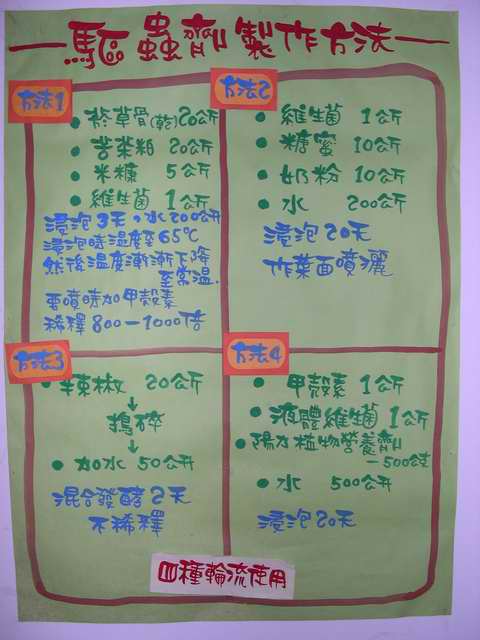 驅蟲劑製作方法
方法1
菸草骨(乾)20公斤
苦茶粕 20公斤
米糠 5公斤
維生菌 1公斤
浸泡3天,水200公升
浸泡時溫度至65℃
然後溫度漸漸下降
至常溫.
要噴時加甲殼素
稀釋800－1000倍
方法2
維生菌 1公斤
糖蜜 10公斤
奶粉 10公斤
水 200公斤
浸泡20天
作葉面噴灑
方法3
辣椒 20公斤
↓
搗碎
↓
加水 50公升
混合發酵2天
不稀釋
方法4
甲殼素 1公斤
液體維生菌 1公斤
陽力植物營養劑
－500公克
水 500公升
浸泡20天
四種輪流使用